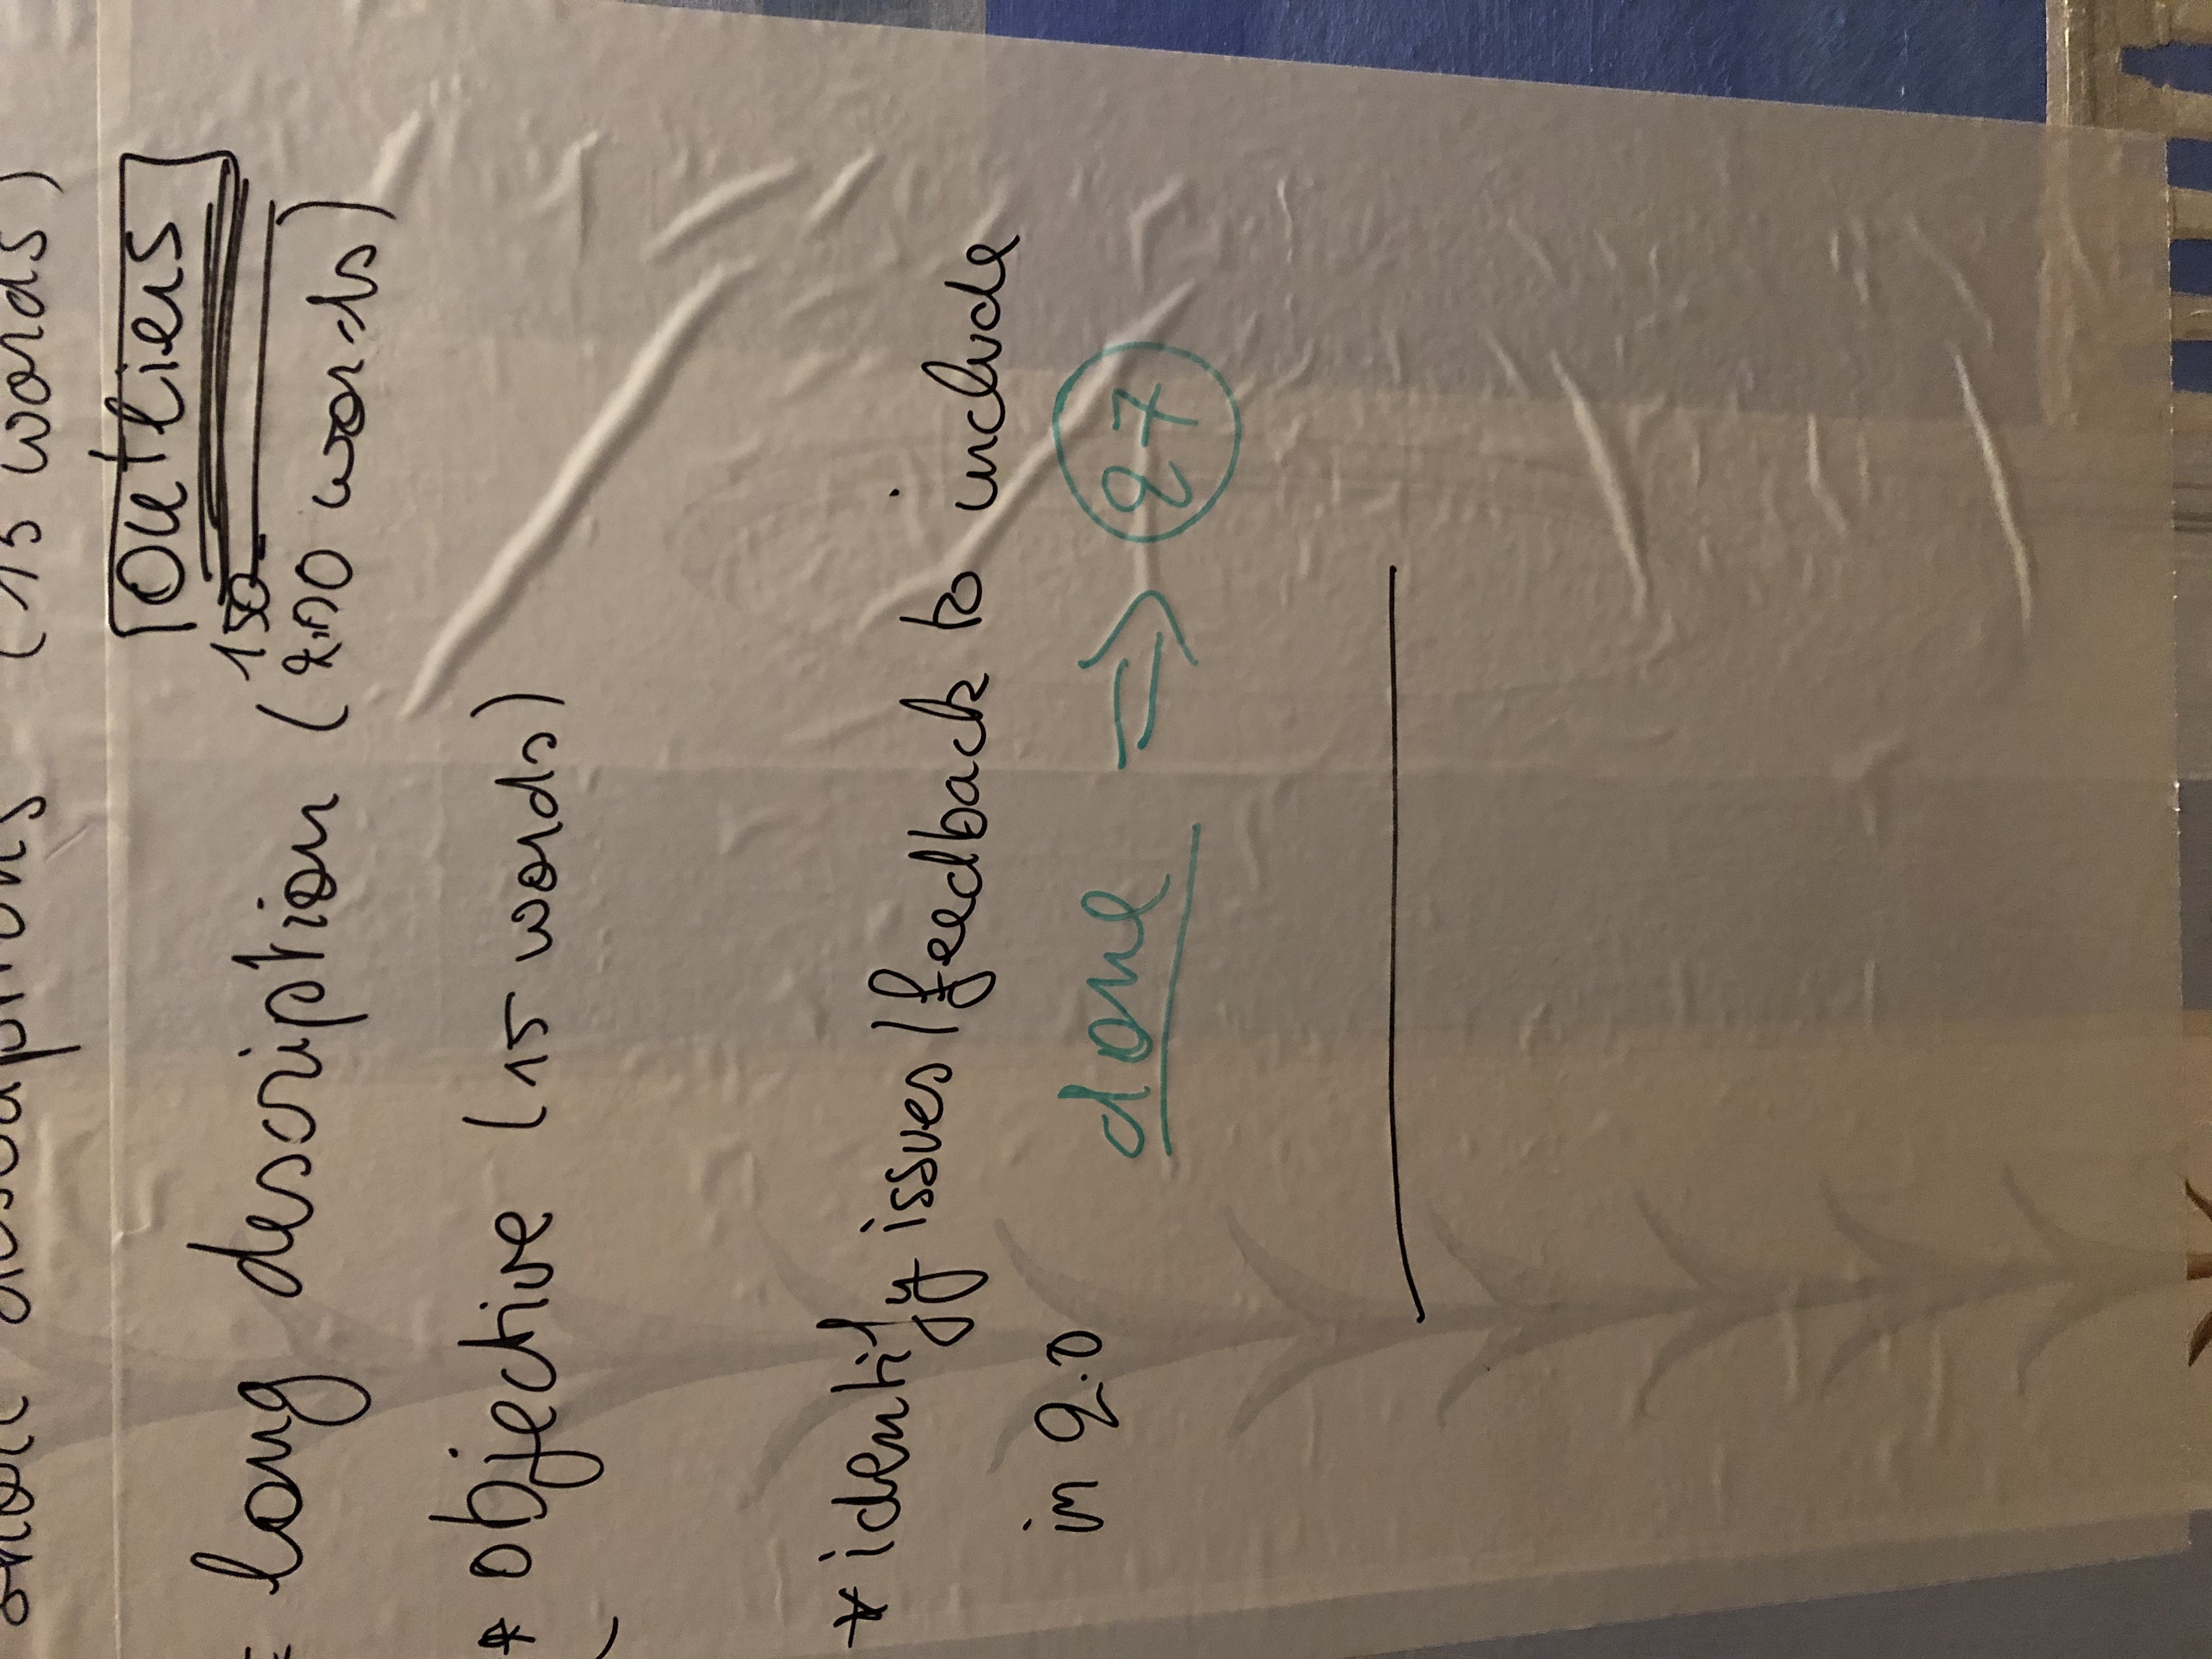 short descriptions (15 words)
outliers
= long description (150-200 words)
* objective (15 words)
* identify issues/feedback to include
in 2.0
done => 27